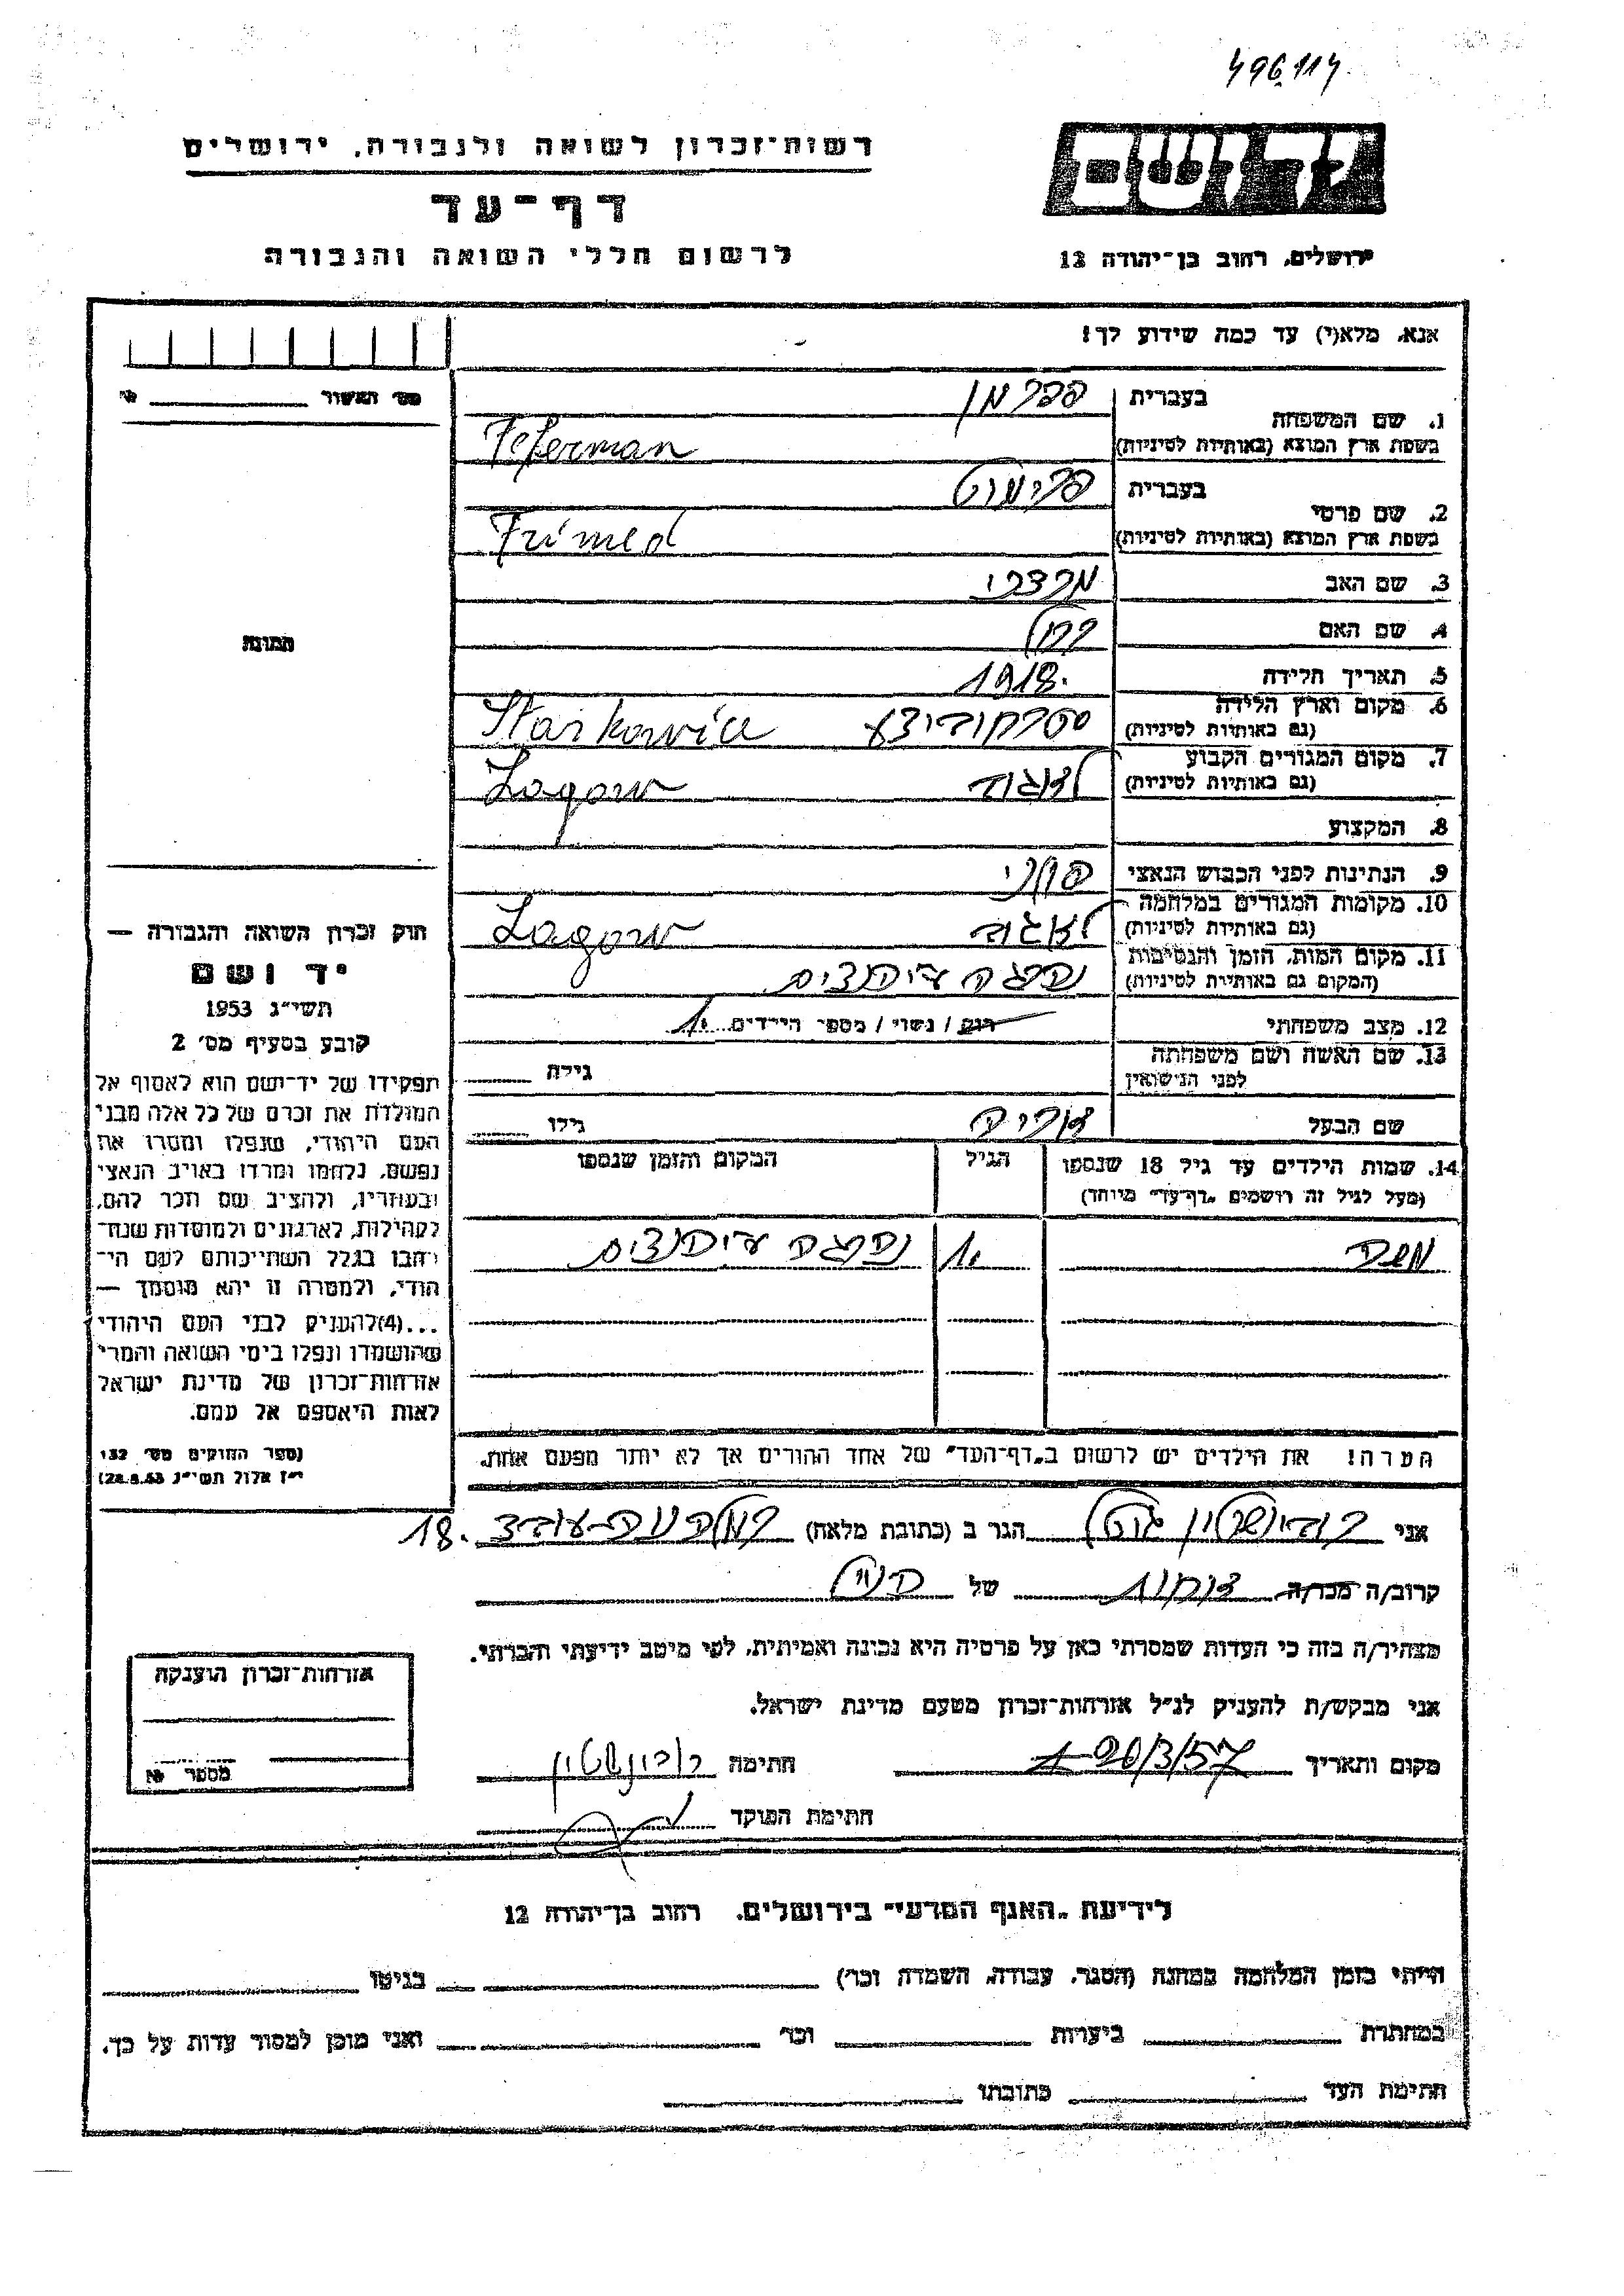 496114
רשות-זכרון לשואה ולגבורה, ירושלים
דף-עד
לרשום חללי השואה והגבורה
ירושלים, רחוב בן-יהודה 12
אנא, מלא(י) עד כמה שידוע לך!
מס' האשור №
1. שם המשפחה
בעברית פפרמן
בשפת ארץ המוצא (באותיות לטיניות) Feferman
2. שם פרטי
בעברית פרימוט
בשפת ארץ המוצא (באותיות לטיניות) Frimed
3. שם האב מרדכי
4. שם האם
5. תאריך הלידה 1918.
6. מקום וארץ הלידה
(גם באותיות לטיניות) Starkowia
7. מקום המגורים הקבוע
(גם באותיות לטיניות) לאגוב Lagow
8. המקצוע
9. הנתינות לפני הכבוש הנאצי פולני
10. מקומות המגורים במלחמה
(גם באותיות לטיניות) לאגוב Lagow
11. מקום המות, הזמן והנסיבות
(המקום גם באותיות לטיניות)
12. מצב משפחתי רווק / נשוי / מספר הילדים 1.
13. שם האשה ושם משפחתה
לפני הנישואין
גילה
שם הבעל
גילו
14. שמות הילדים עד גיל 18 שנספו
(מעל לגיל זה רושמים "דף-עד" מיוחד)
הגיל
המקום והזמן שנספו
משה
הערה! את הילדים יש לרשום ב"דף-העד" של אחד ההורים אך לא יותר מפעם אחת.
התמונה
חוק זכרון השואה והגבורה —
יד ושם
תשי"ג 1953
קובע בסעיף מס' 2
תפקידו של יד-ושם הוא לאסוף אל
המולדת את זכרם של כל אלה מבני
העם היהודי, שנפלו ומסרו את
נפשם, נלחמו ומרדו באויב הנאצי
ובעוזריו, ולהציב שם וזכר להם,
לקהילות, לארגונים ולמוסדות שנח־
רבו בגלל השתייכותם לעם הי־
הודי, ולמטרה זו יהא מוסמך —
...(4)להעניק לבני העם היהודי
שהושמדו ונפלו בימי השואה והמרי
אזרחות-זכרון של מדינת ישראל
לאות היאספם אל עמם.
(ספר החוקים מס' 132
י"ז אלול תשי"ג 28.8.53)
אני רובינשטין הגר ב (כתובת מלאה) 18.
קרוב/ה מכר/ה אחות של
מצהיר/ה בזה כי העדות שמסרתי כאן על פרטיה היא נכונה ואמיתית, לפי מיטב ידיעתי והכרתי.
אני מבקש/ת להעניק לנ"ל אזרחות-זכרון מטעם מדינת ישראל.
מקום ותאריך 20/3/57 חתימה רובינשטין
חתימת הפוקד
אזרחות-זכרון הוענקה
מספר №
לידיעת "האגף המדעי" בירושלים, רחוב בן-יהודה 12
הייתי בזמן המלחמה במחנה (הסגר, עבודה, השמדה וכו') בגיטו
במחתרת ביערות וכו' ואני מוכן למסור עדות על כך.
חתימת העד כתובתו